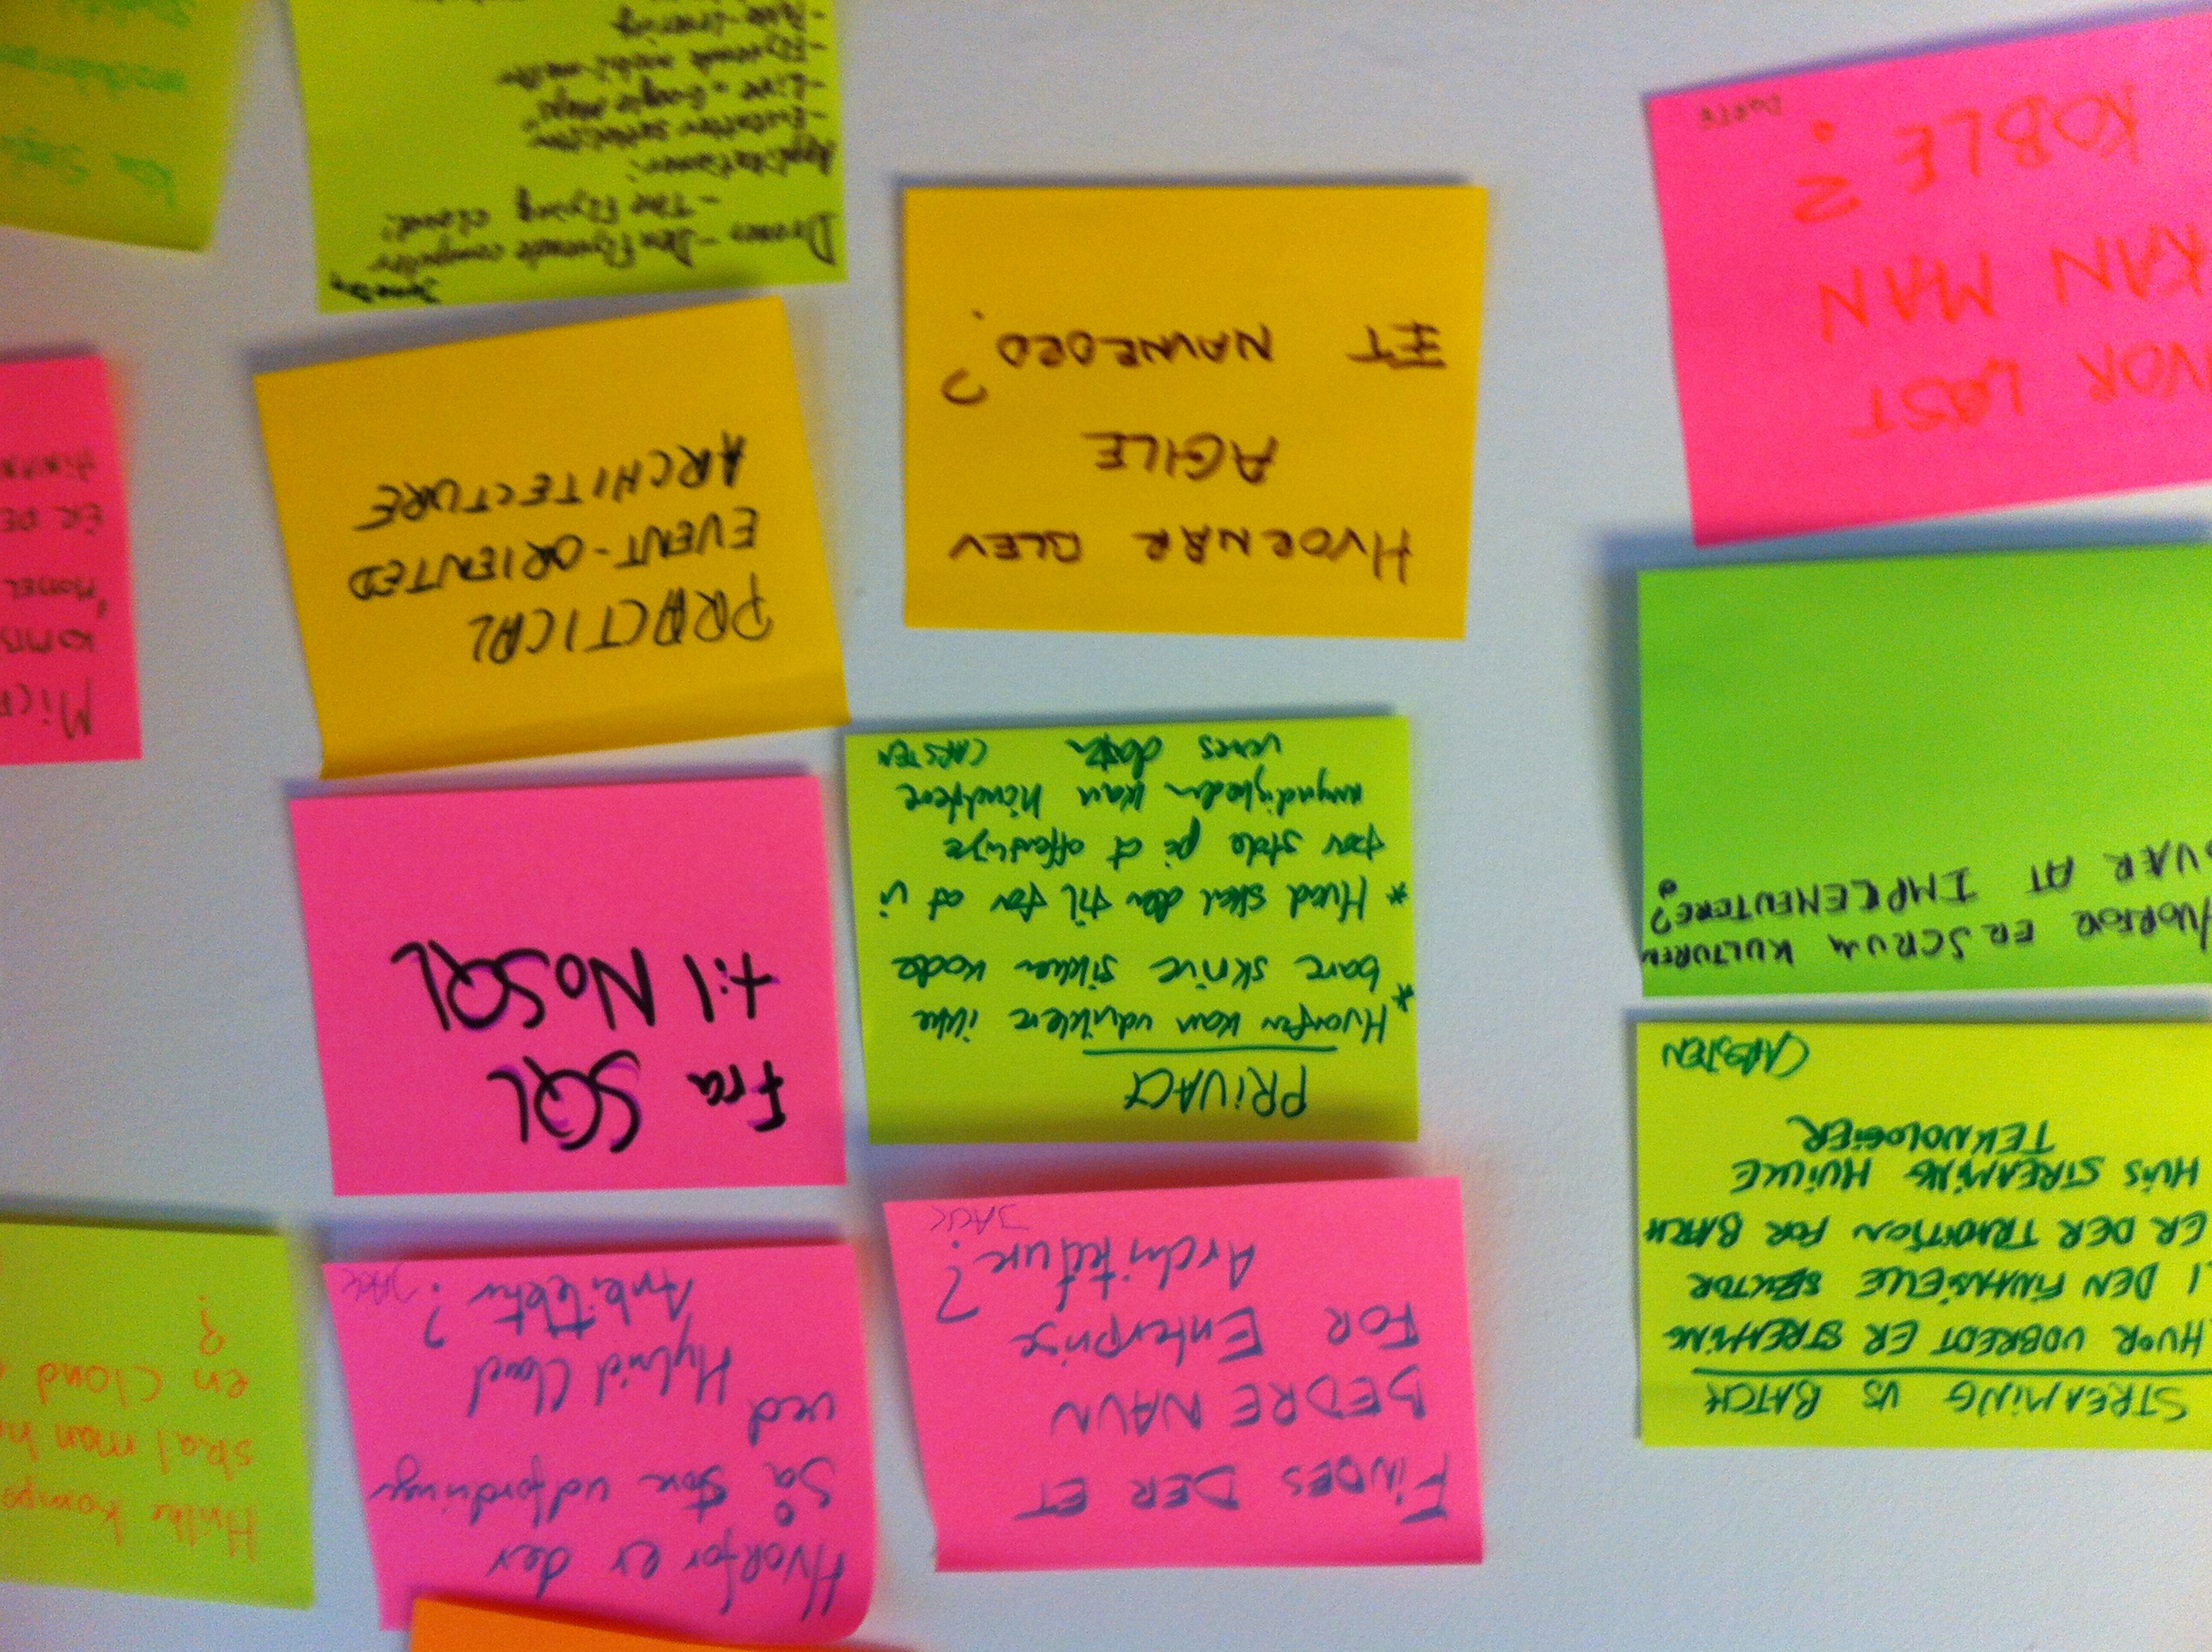 STREAMING VS BATCH
HVOR UDBREDT ER STREAMING
I DEN FINANSIELLE SEKTOR
ER DER TRADITION FOR BATCH
HVIS STREAMING HVILKE
TEKNOLOGIER
CARSTEN
HVORFOR ER SCRUM KULTUREN
SVÆR AT IMPLEMENTERE?
HVOR LØST
KAN MAN
KOBLE?
DORTE
FINDES DER ET
BEDRE NAVN
FOR Enterprise
Architecture?
JACK
PRIVACY
* Hvorfor kan udviklere ikke
bare skrive sikker kode
* Hvad skal der til for at vi
tør stole på at offentlige
myndigheder kan håndtere
vores data CARSTEN
HVORNÅR BLEV
AGILE
ET NAVNEORD?
Hvorfor er der
så store udfordringer
ved
Hybrid Cloud
Arkitektur?
JACK
Fra SQL
til NoSQL
PRACTICAL
EVENT-ORIENTED
ARCHITECTURE
Droner - Den flyvende computer
- The Flying cloud!
Applikationer:
- Erstatter satellitter
- Live "Google Maps"
- Flyvende mobil-master
- Pakke-levering
Hvilke kompo
skal man h
en Cloud
?
Micr
KOMB
"MODEL
ER DE